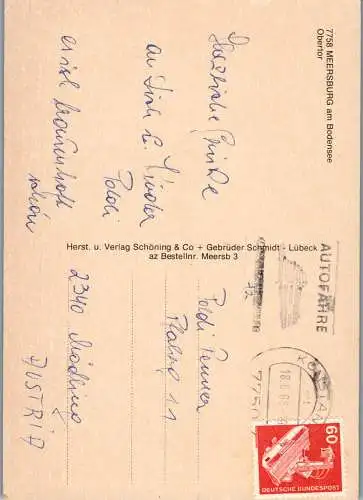 7758 MEERSBURG am Bodensee
Obertor
Herzliche Grüße
an Dich u. Kinder
Poldi
es ist traumhaft
schön
Herst. u. Verlag Schöning & Co + Gebrüder Schmidt - Lübeck
az Bestellnr. Meersb 3
AUTOFÄHRE
KONSTANZ
7750
60
DEUTSCHE BUNDESPOST
Poldi
2340 Mödling
AUSTRIA